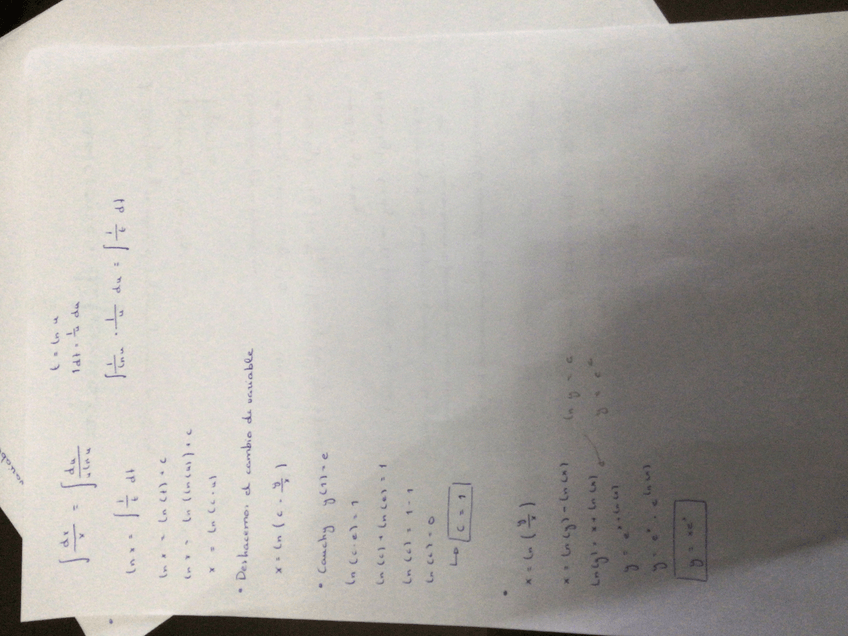 ∫ dx/x = ∫ du/(u ln u)
t = ln u
1 dt = 1/u du
ln x = ∫ 1/t dt
∫ 1/ln u · 1/u du = ∫ 1/t dt
ln x = ln (t) + c
ln x = ln (ln(u)) + c
x = ln (c · u)
• Deshacemos el cambio de variable
x = ln (c · y/x)
• Cauchy y(1) = e
ln (c · e) = 1
ln (c) + ln (e) = 1
ln (c) = 1 - 1
ln (c) = 0
↳ c = 1
• x = ln (y/x)
x = ln (y) - ln (x)
ln y = a
ln (y) = x + ln (x)
y = e^a
y = e^(x + ln(x))
y = e^x · e^(ln(x))
y = xe^x